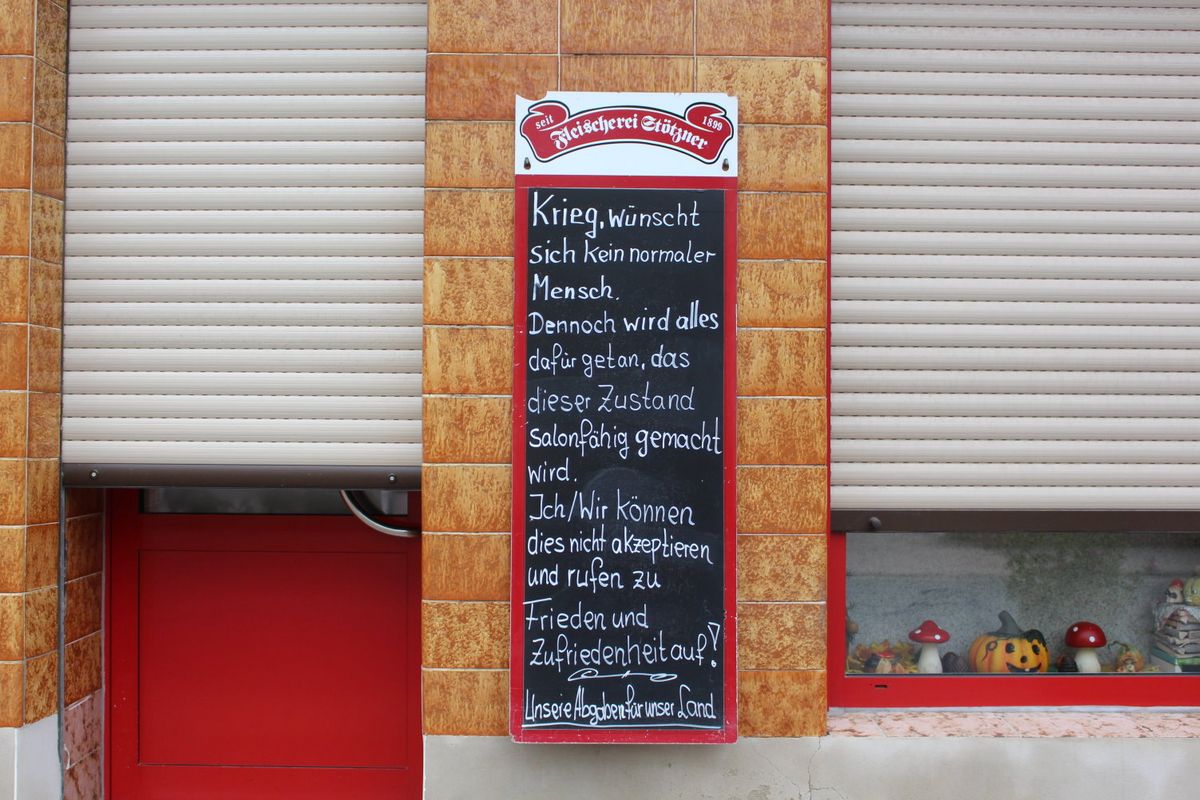 seit Fleischerei Stötzner 1899
Krieg, wünscht
sich kein normaler
Mensch.
Dennoch wird alles
dafür getan, das
dieser Zustand
salonfähig gemacht
wird.
Ich/Wir können
dies nicht akzeptieren
und rufen zu
Frieden und
Zufriedenheit auf!
Unsere Abgaben für unser Land